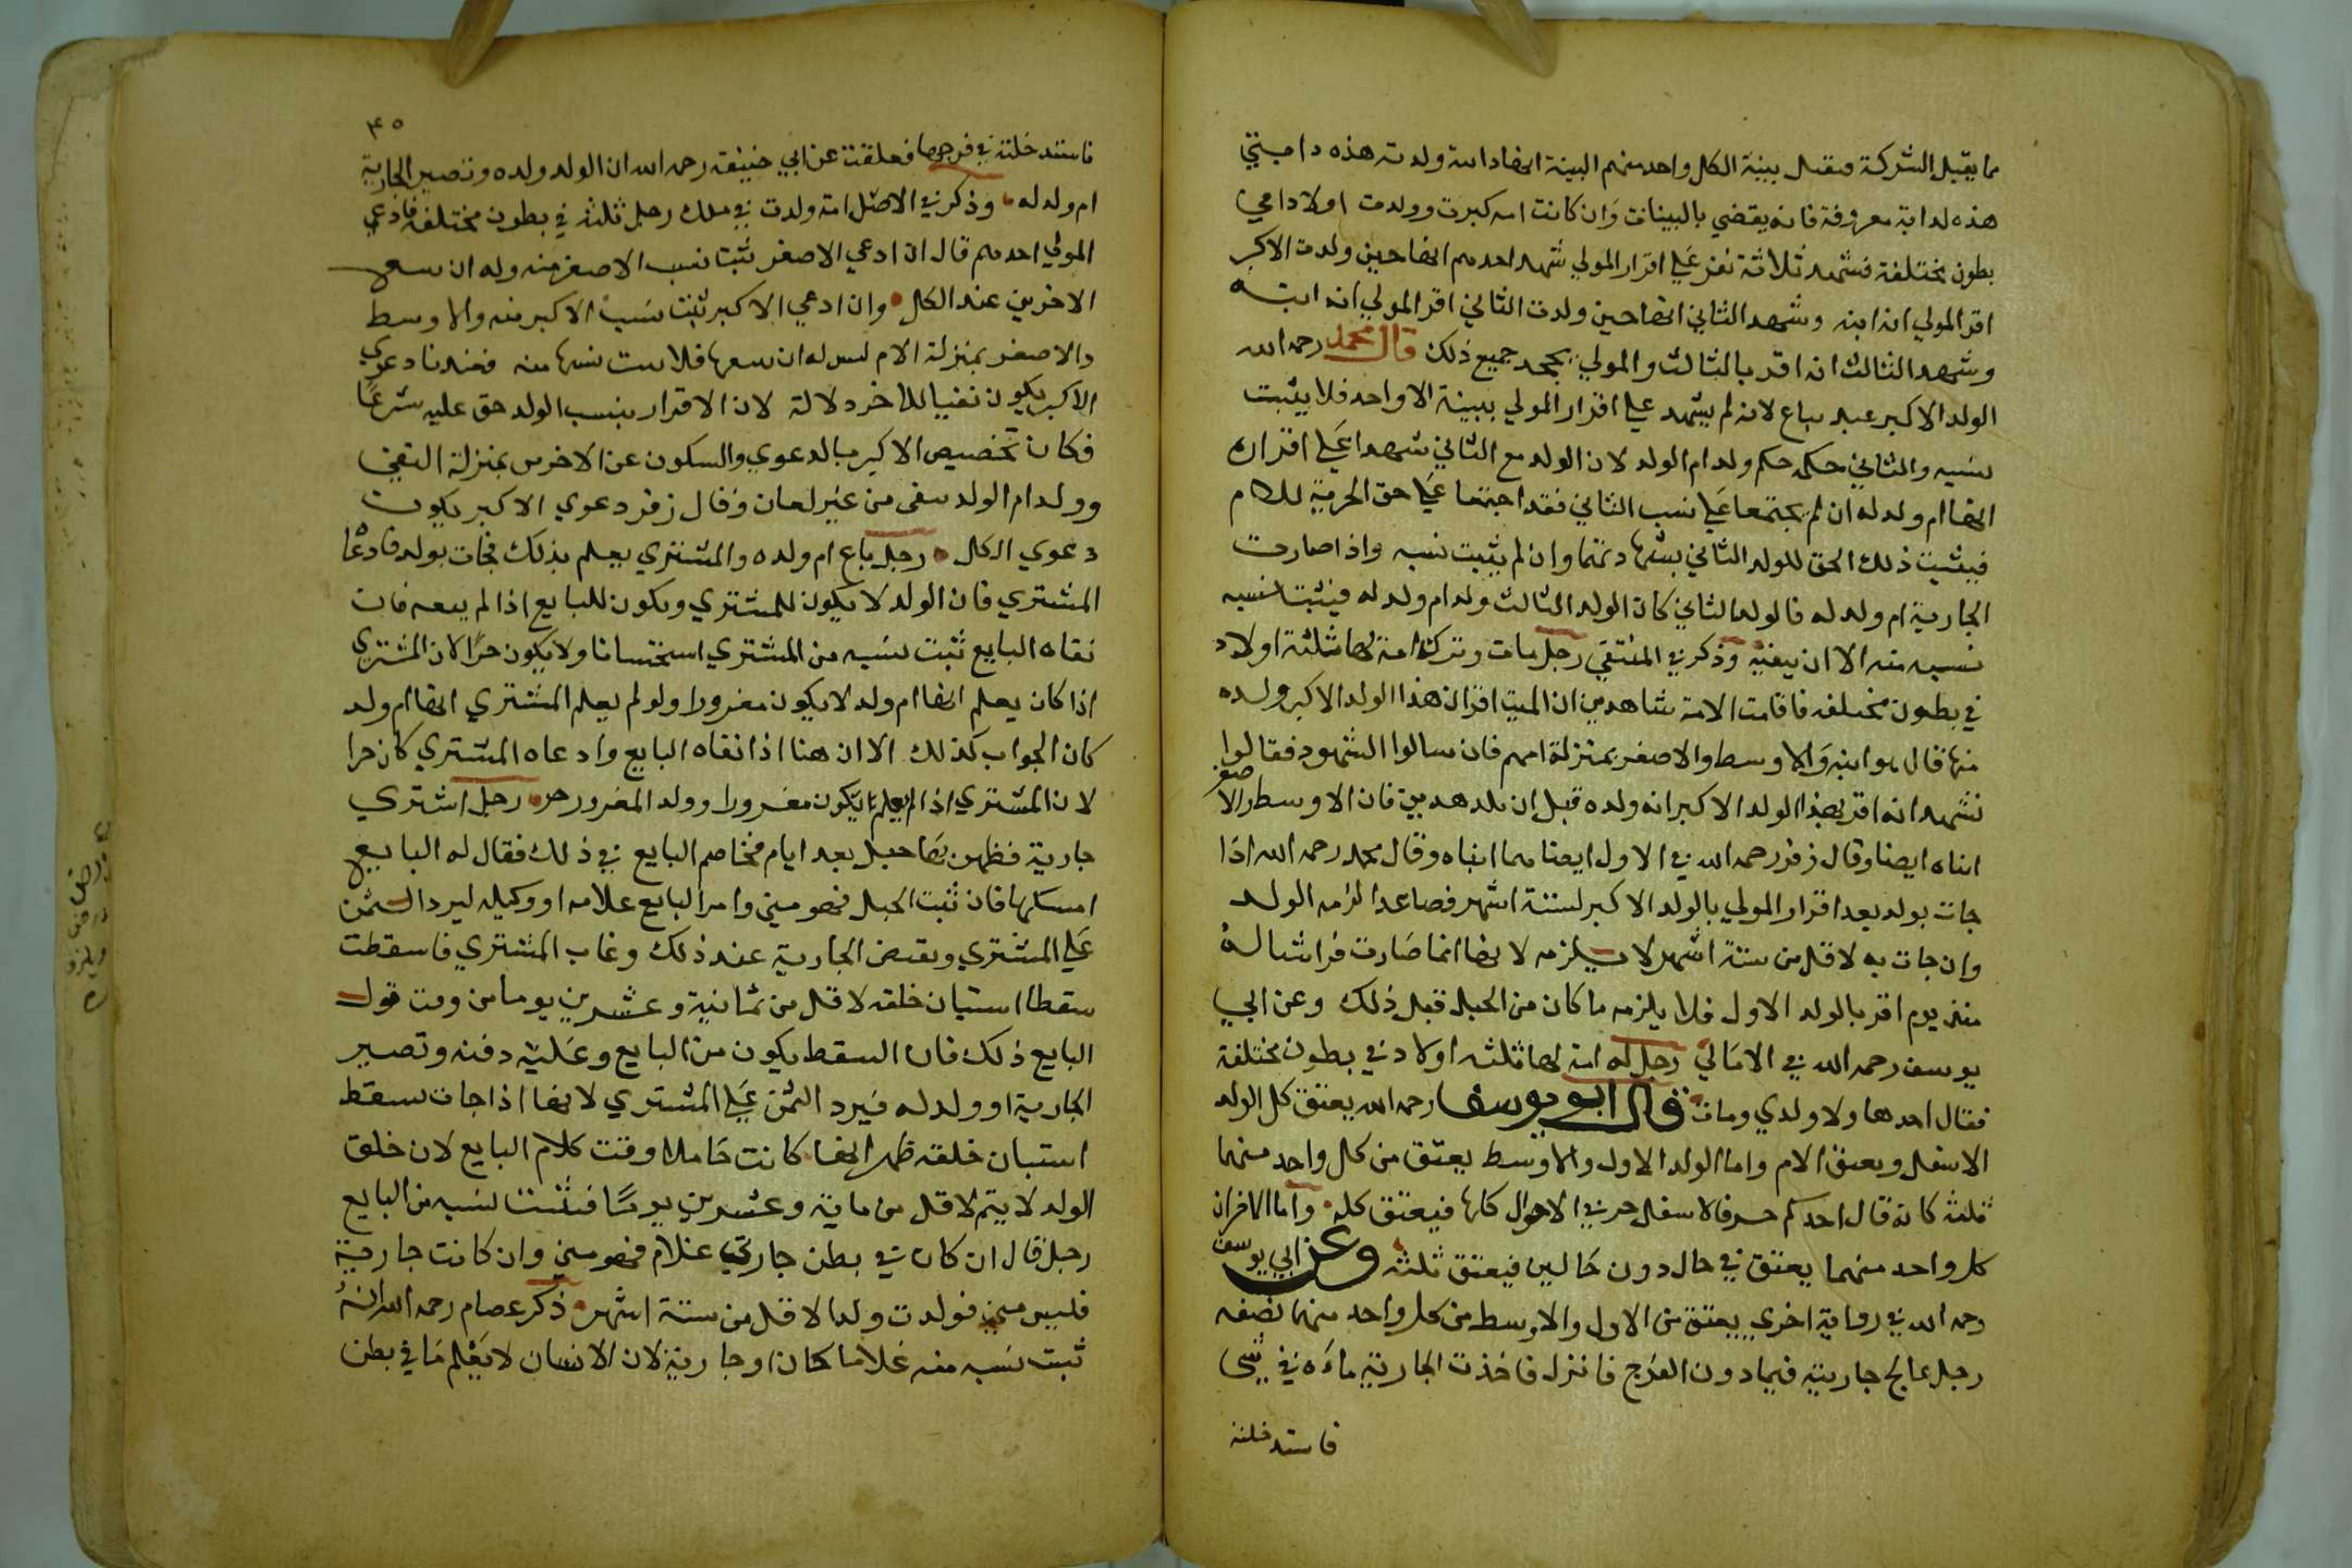 مما يقبل الشركة فتقبل بينة الكل واحد منهم البينة انها دابته ولدت هذه دابتي
هذه لدابة معروفة فانه يقضي بالبينات وان كانت امه كبرت وولدت اولادا في
بطون مختلفة فشهد ثلاثة نفر علي اقرار المولي شهد احدهم انها حين ولدت الاكبر
اقر المولي انه ابنه وشهد الثاني انها حين ولدت الثاني اقر المولي انه ابنه
وشهد الثالث انه اقر بالثالث والمولي يجحد جميع ذلك قال محمد رحمه الله
الولد الاكبر عبد يباع لانه لم يشهد علي اقرار المولي ببينة الا واحد فلا يثبت
نسبه والثاني حكمه حكم ولد ام الولد لان الولد مع الثاني شهدا علي اقراره
انها ام ولد له ان لم يجتمعا علي نسب الثاني فقد اجتمعا علي حق الحرية للام
فيثبت ذلك الحق للولد الثاني وان لم يثبت نسبه واذا صارت
الجارية ام ولد له فالولد الثاني كان الولد الثالث ولد ام ولد له فيثبت نسبه
نسبه منه الا ان ينفيه وذكر في المنتقي رجل مات وترك امة لها ثلثة اولاد
في بطون مختلفه فاقامت الامة شاهدين ان الميت اقر ان هذا الولد الاكبر ولده
منها قال هو ابنه والاوسط والاصغر بمنزلة امهم فان سالوا الشهود فقالوا
نشهد انه اقر بهذا الولد الاكبر انه ولده قبل ان تلد هذين فان الاوسط والاصغر
ابناه ايضا وقال زفر رحمه الله في الاول ايضا هما ابناه وقال محمد رحمه الله اذا
جات بولد بعد اقرار المولي بالولد الاكبر لستة اشهر فصاعدا لزمه الولد
وان جات به لاقل من ستة اشهر لا يلزمه لانها انما صارت فراشا له
منذ يوم اقر بالولد الاول فلا يلزمه ما كان من الحبل قبل ذلك وعن ابي
يوسف رحمه الله في الامالي رجل له امة لها ثلثه اولاد في بطون مختلفة
فقال احد هاولا ولدي ومات قال ابو يوسف رحمه الله يعتق كل الولد
الاسفل ويعتق الام واما الولد الاول والاوسط يعتق من كل واحد منهما
ثلثه كانه قال احدكم حر فالاسفل حر في الاحوال كلها فيعتق كله واما الاخران
كل واحد منهما يعتق في حال دون حالين فيعتق ثلثه وعن ابي يوسف
رحمه الله في رواية اخري يعتق من الاول والاوسط من كل واحد منهما نصفه
رجل عالج جارية فيما دون الفرج فانزل فاخذت الجارية ماءه في شي
فاستدخلته
٤٥
فاستدخلته في فرجها فعلقت عن ابي حنيفة رحمه الله ان الولد ولده وتصير الجارية
ام ولد له وذكر في الاصل امة ولدت في ملك رجل ثلثة في بطون مختلفه فادعي
المولي احدهم قال ان ادعي الاصغر ثبت نسب الاصغر منه وله ان يبيع
الاخرين عند الكل وان ادعي الاكبر ثبت نسب الاكبر منه والاوسط
والاصغر بمنزلة الام ليس له ان يبيعها فلا يثبت نسبها منه فعندنا دعوي
الاكبر يكون نفيا للاخر دلالة لان الاقرار بنسب الولد حق عليه شرعا
فكان تخصيص الاكبر بالدعوي والسكون عن الاخرين بمنزلة النفي
وولد ام الولد ينفي من غير لعان وقال زفر دعوي الاكبر يكون
دعوي الكل رجل باع ام ولده والمشتري يعلم بذلك فجات بولد فادعا
المشتري فان الولد لا يكون للمشتري ويكون للبايع اذا لم ينفه فان
نفاه البايع ثبت نسبه من المشتري استحسانا ولا يكون حرا لان المشتري
اذا كان يعلم انها ام ولد لا يكون مغرورا ولو لم يعلم المشتري انها ام ولد
كان الجواب كذلك الا ان هنا اذا نفاه البايع وادعاه المشتري كان حرا
لان المشتري اذا لم يعلم يكون مغرورا وولد المغرور حر رجل اشتري
جارية فظهر بها حبل بعد ايام فخاصم البايع في ذلك فقال له البايع
امسكها فان ثبت الحبل فهو مني وامر البايع غلامه او وكيله ليرد الثمن
علي المشتري ويقبض الجارية عند ذلك وغاب المشتري فاسقطت
سقطا استبان خلقه لاقل من ثمانية وعشرين يوما من وقت قول
البايع ذلك فان السقط يكون من البايع وعليه دفنه وتصير
الجارية او ولد له فيرد الثمن علي المشتري لانها اذا جات بسقط
استبان خلقه ظهر انها كانت حاملا وقت كلام البايع لان خلق
الولد لا يتم لاقل من ماية وعشرين يوما فيثبت نسبه من البايع
رجل قال ان كان في بطن جاريتي غلام فهو مني وان كانت جارية
فليس مني فولدت ولدا لاقل من ستة اشهر ذكر عصام رحمه الله انه
ثبت نسبه منه غلاما كان او جارية لان الانسان لا يعلم ما في بطن